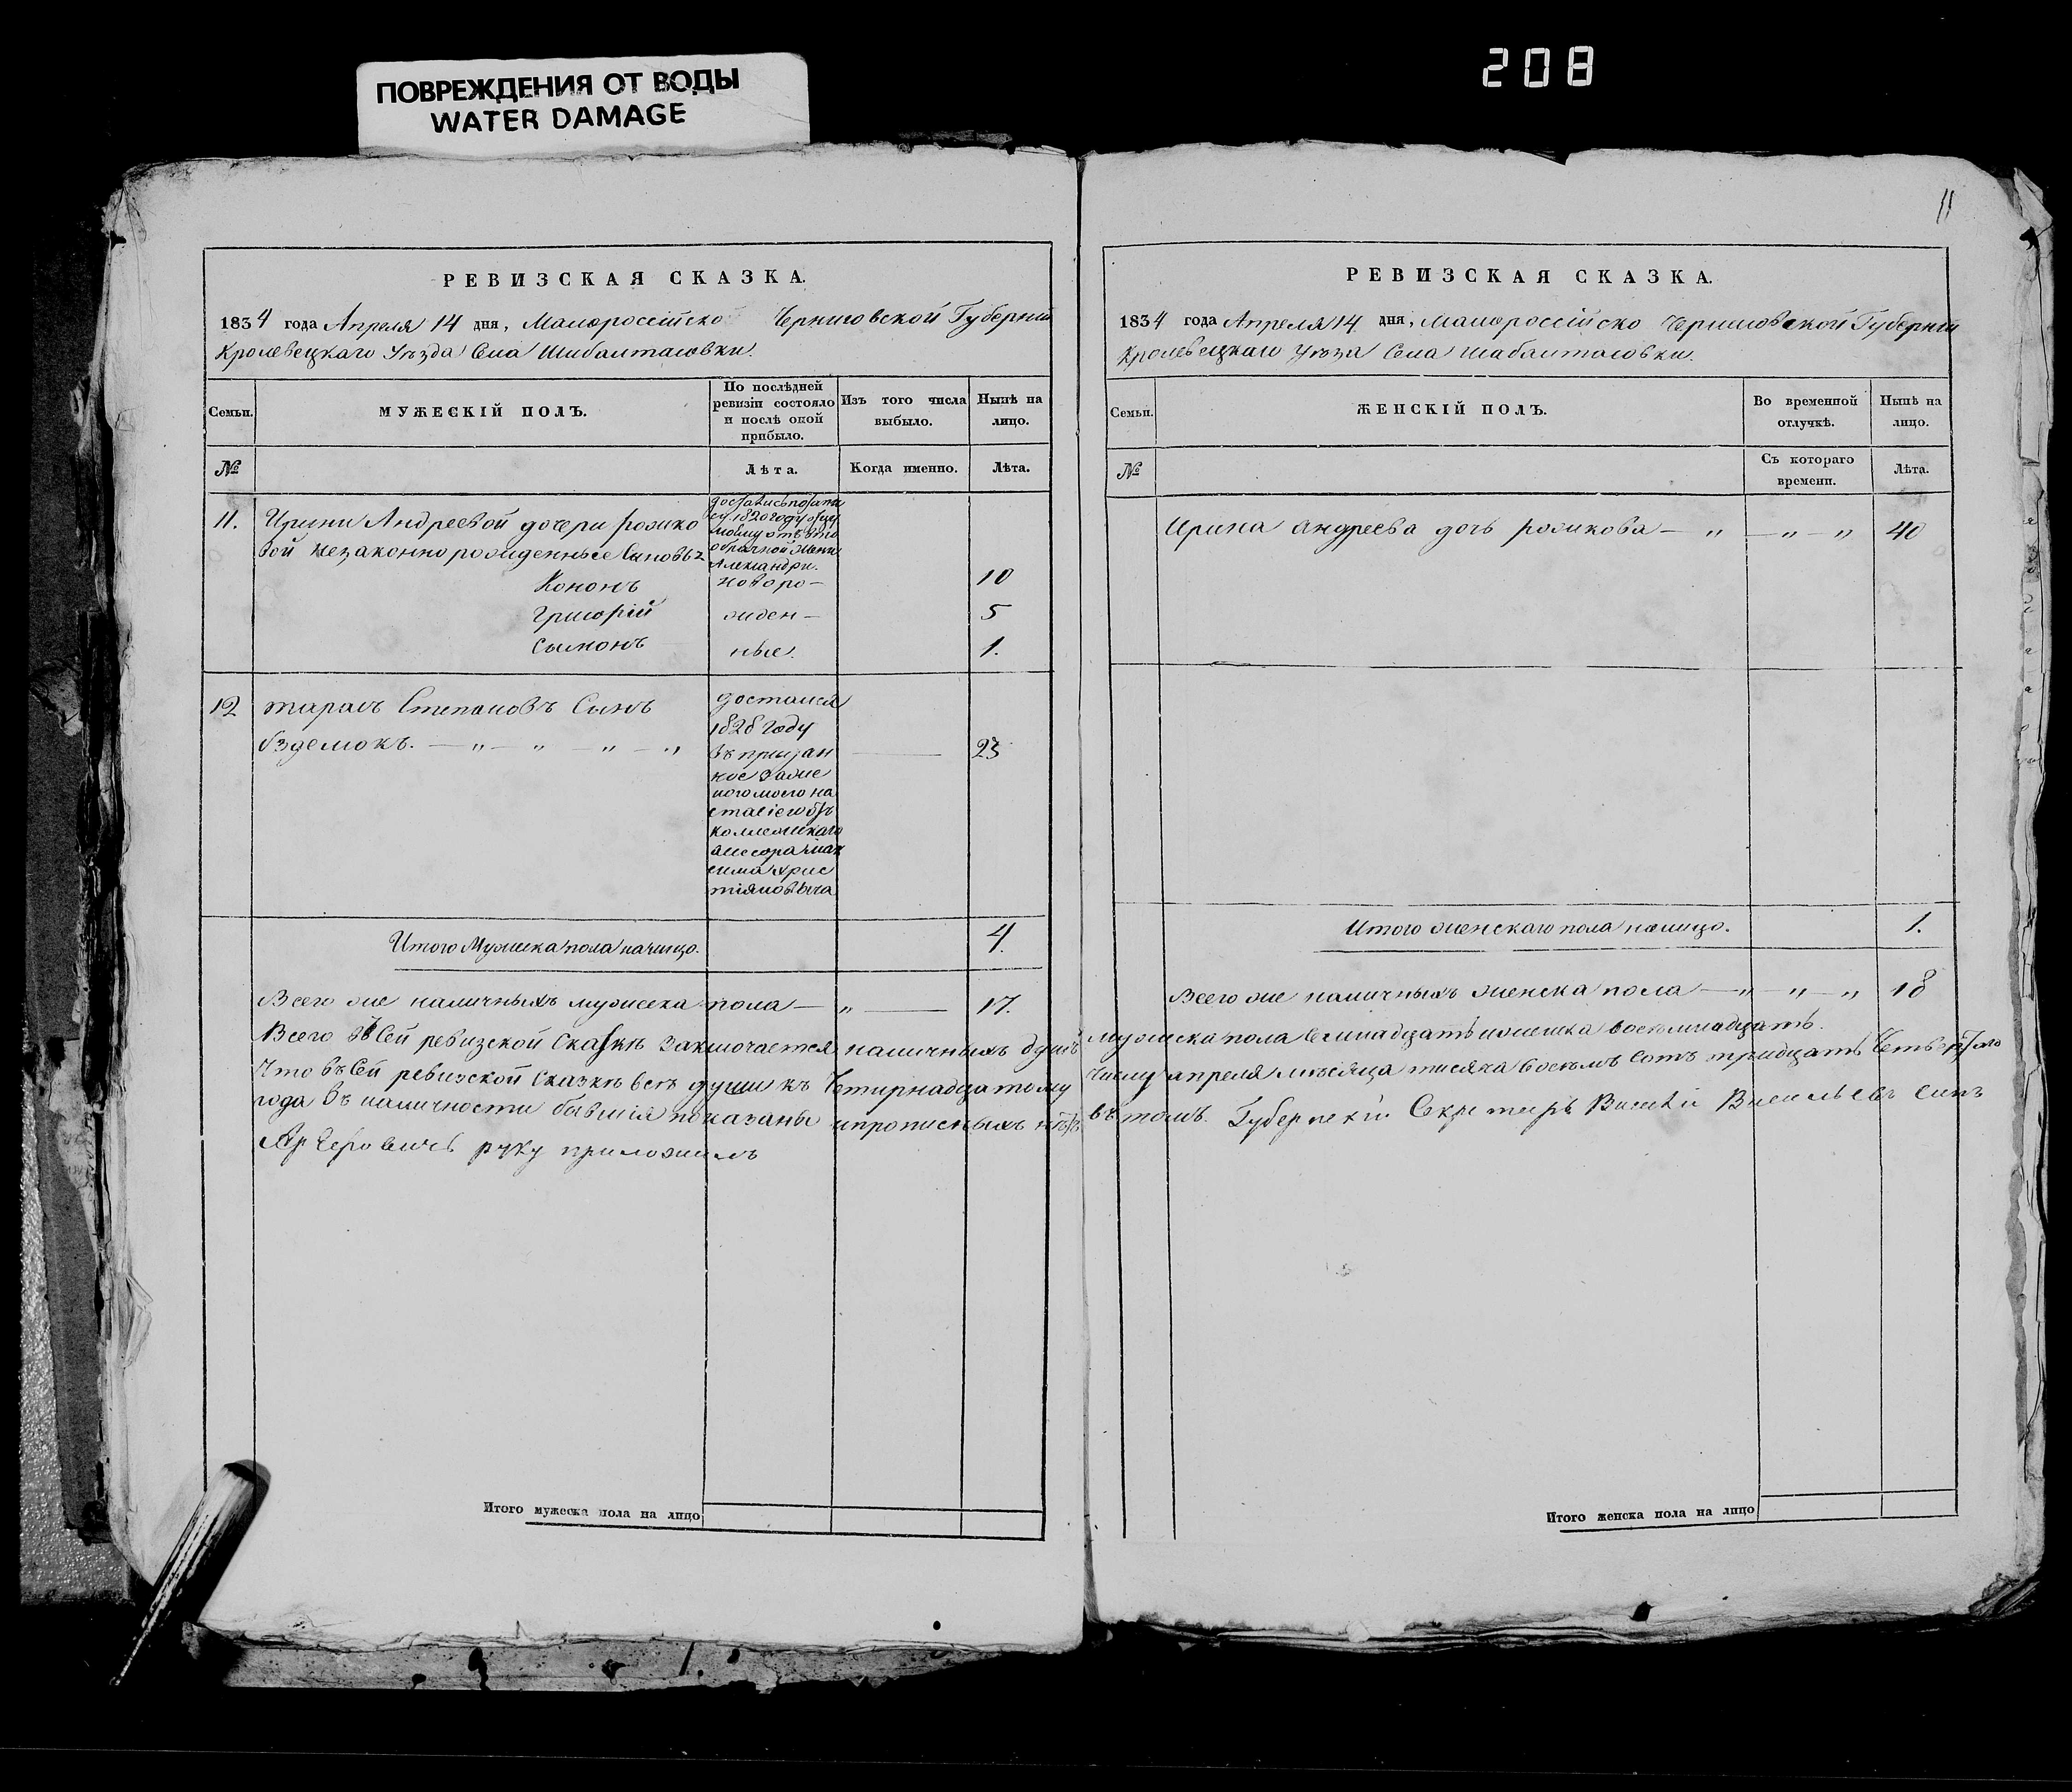 ПОВРЕЖДЕНИЯ ОТ ВОДЫ
WATER DAMAGE
208
11
РЕВИЗСКАЯ СКАЗКА.
1834 года Апреля 14 дня, Малороссійско Черниговской Губерніи
Кролевецкаго Уезда Села Шибалтасовки.
Семьи.
МУЖЕСКІЙ ПОЛЪ.
По послѣдней ревизіи состояло и послѣ оной прибыло.
Изъ того числа выбыло.
Нынѣ на лицо.
№
Лѣта.
Когда именно.
Лѣта.
11. Ирини Андреевой дочери рожико
вой незаконно рожденные Сыновья
1820 году
Александри.
Кононъ новоро— 10
Григорій жден— 5
Сымонъ ные. 1.
12 тарасъ Степановъ Сынъ
бзделюкъ. — „ — „ — „ — „ 23
достался
1828 году
коллежскаго
Хрис
тіяновыча
Итого Мужска пола налицо. 4.
Всего же наличныхъ мужеска пола — „ — 17.
РЕВИЗСКАЯ СКАЗКА.
1834 года Апреля 14 дня, Малороссійско Черниговской Губерніи
Кролевецкаго Уезда Села Шабалтасовки.
Семьи.
ЖЕНСКІЙ ПОЛЪ.
Во временной отлучкѣ.
Нынѣ на лицо.
№
Съ котораго времени.
Лѣта.
Ирина Андреева дочь рожикова — „ — „ — „ 40
Итого женскаго пола налицо. 1.
Всего же наличныхъ женска пола — „ — „ — „ 18
Всего въ Сей ревизской Сказкѣ заключается наличныхъ душъ мужска пола Семнадцать и женска восемнадцать.
Что въ Сей ревизской Сказкѣ всѣ души къ Четирнадцатому числу апреля мѣсяца тисяча восемъ сотъ тридцать Четвертого
года въ наличности бывшія показаны и прописныхъ нѣтъ въ томъ. Губернскій Секретарь Василій Васильевъ синъ
руку приложилъ
Итого мужеска пола на лицо
Итого женска пола на лицо